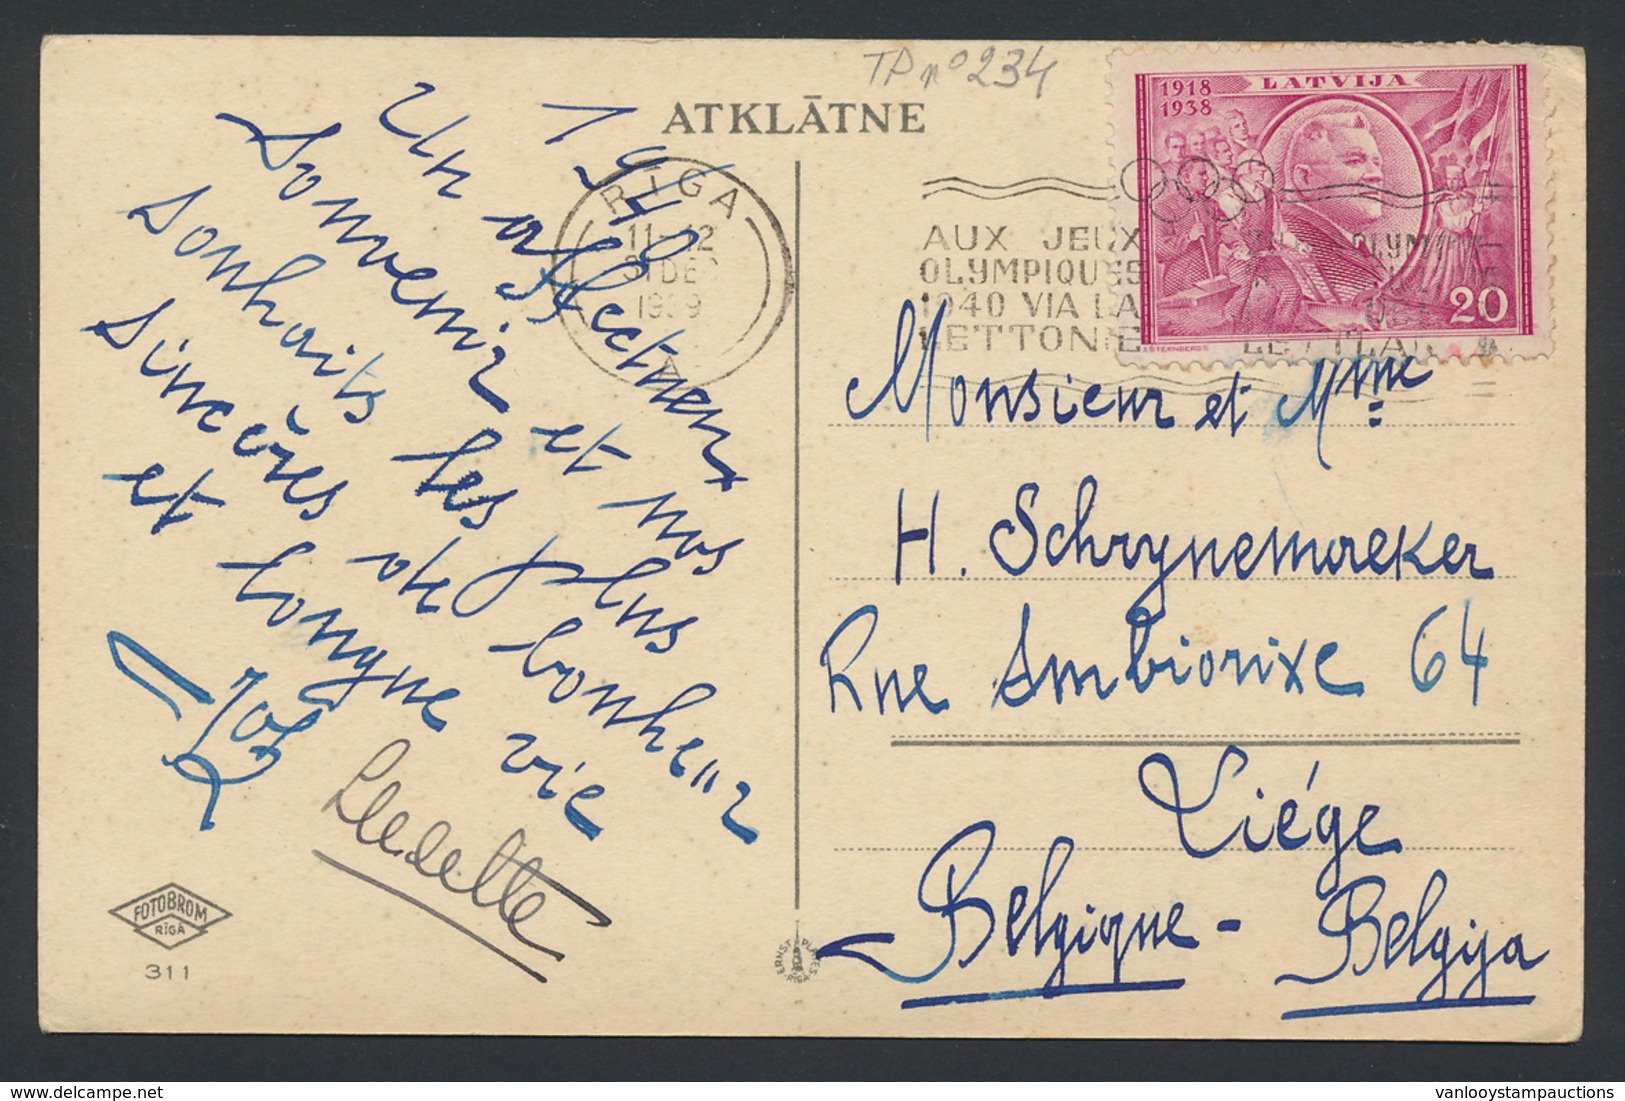 TP nº 234
ATKLĀTNE
1918
1938
LATVIJA
20
RĪGA
11-12
31 DEC
1939
A
AUX JEUX
OLYMPIQUES
1940 VIA LA
LETTONIE
Un affectueux
Souvenir et nos
souhaits les plus
sincères de bonheur
et longue vie
Monsieur et Mme
H. Schrynemaeker
Rue Ambiorixe 64
Liége
Belgique - Belgija
FOTOBROM
RĪGA
311
ERNST PLATES
RĪGA
vanlooystampauctions